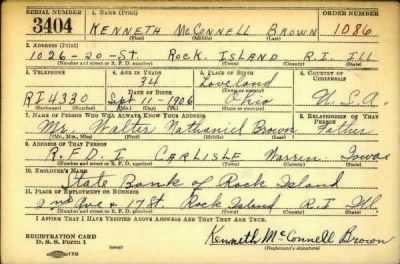 SERIAL NUMBER 1. NAME (Print) ORDER NUMBER
3404 KENNETH McCONNELL BROWN 1086
(First) (Middle) (Last)
2. ADDRESS (Print)
1026-20-ST. ROCK ISLAND R.I. ILL.
(Number and street or R. F. D. number) (Town) (County) (State)
3. TELEPHONE 4. AGE IN YEARS 5. PLACE OF BIRTH 6. COUNTRY OF CITIZENSHIP
34 Loveland
DATE OF BIRTH (Town or county)
RI 4330 Sept 11-1906 Ohio U.S.A.
(Exchange) (Number) (Mo.) (Day) (Yr.) (State or country)
7. NAME OF PERSON WHO WILL ALWAYS KNOW YOUR ADDRESS 8. RELATIONSHIP OF THAT PERSON
Mr. Walter Nathaniel Brown Father
(Mr., Mrs., Miss) (First) (Middle) (Last)
9. ADDRESS OF THAT PERSON
R.F.D. 1 CARLISLE Warren Iowa
(Number and street or R. F. D. number) (Town) (County) (State)
10. EMPLOYER'S NAME
State Bank of Rock Island
11. PLACE OF EMPLOYMENT OR BUSINESS
2nd Ave & 17 St. Rock Island R.I. Ill.
(Number and street or R. F. D. number) (Town) (County) (State)
I AFFIRM THAT I HAVE VERIFIED ABOVE ANSWERS AND THAT THEY ARE TRUE.
REGISTRATION CARD
D. S. S. Form 1 Kenneth McConnell Brown
(Registrant's signature)